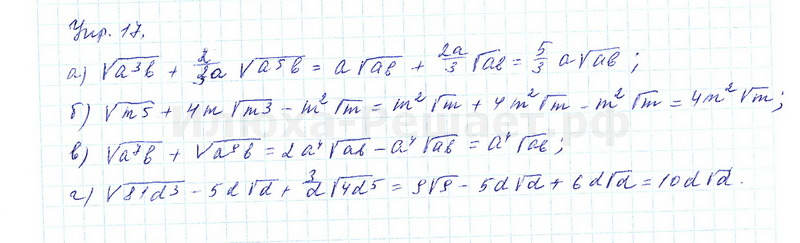 Упр. 17.
а) √(a³b) + 2/(3a) √(a⁵b) = a√(ab) + 2a/3 √(ab) = 5/3 a√(ab);
б) √(m⁵) + 4m√(m³) - m²√m = m²√m + 4m²√m - m²√m = 4m²√m;
в) √(a⁷b) + √(a⁹b) = 2a⁴√(ab) - a⁴√(ab) = a⁴√(ab);
г) √(81d³) - 5d√d + 3/d √(4d⁵) = 9√9 - 5d√d + 6d√d = 10d√d.
Илюха-Решает.рф